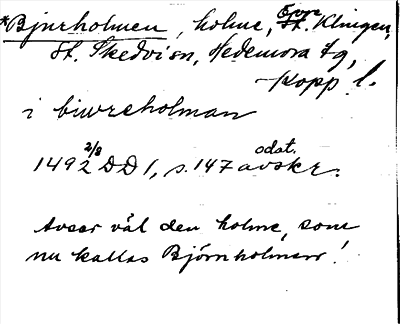 *Bjurholmen, holme, Övre St. Klingen,
St. Skedvi sn, Hedemora tg,
Kopp. l.
i biwreholman
1492 2/8 DD 1, s. 147 odat. avskr.
Avser väl den holme, som
nu kallas Björnholmen!